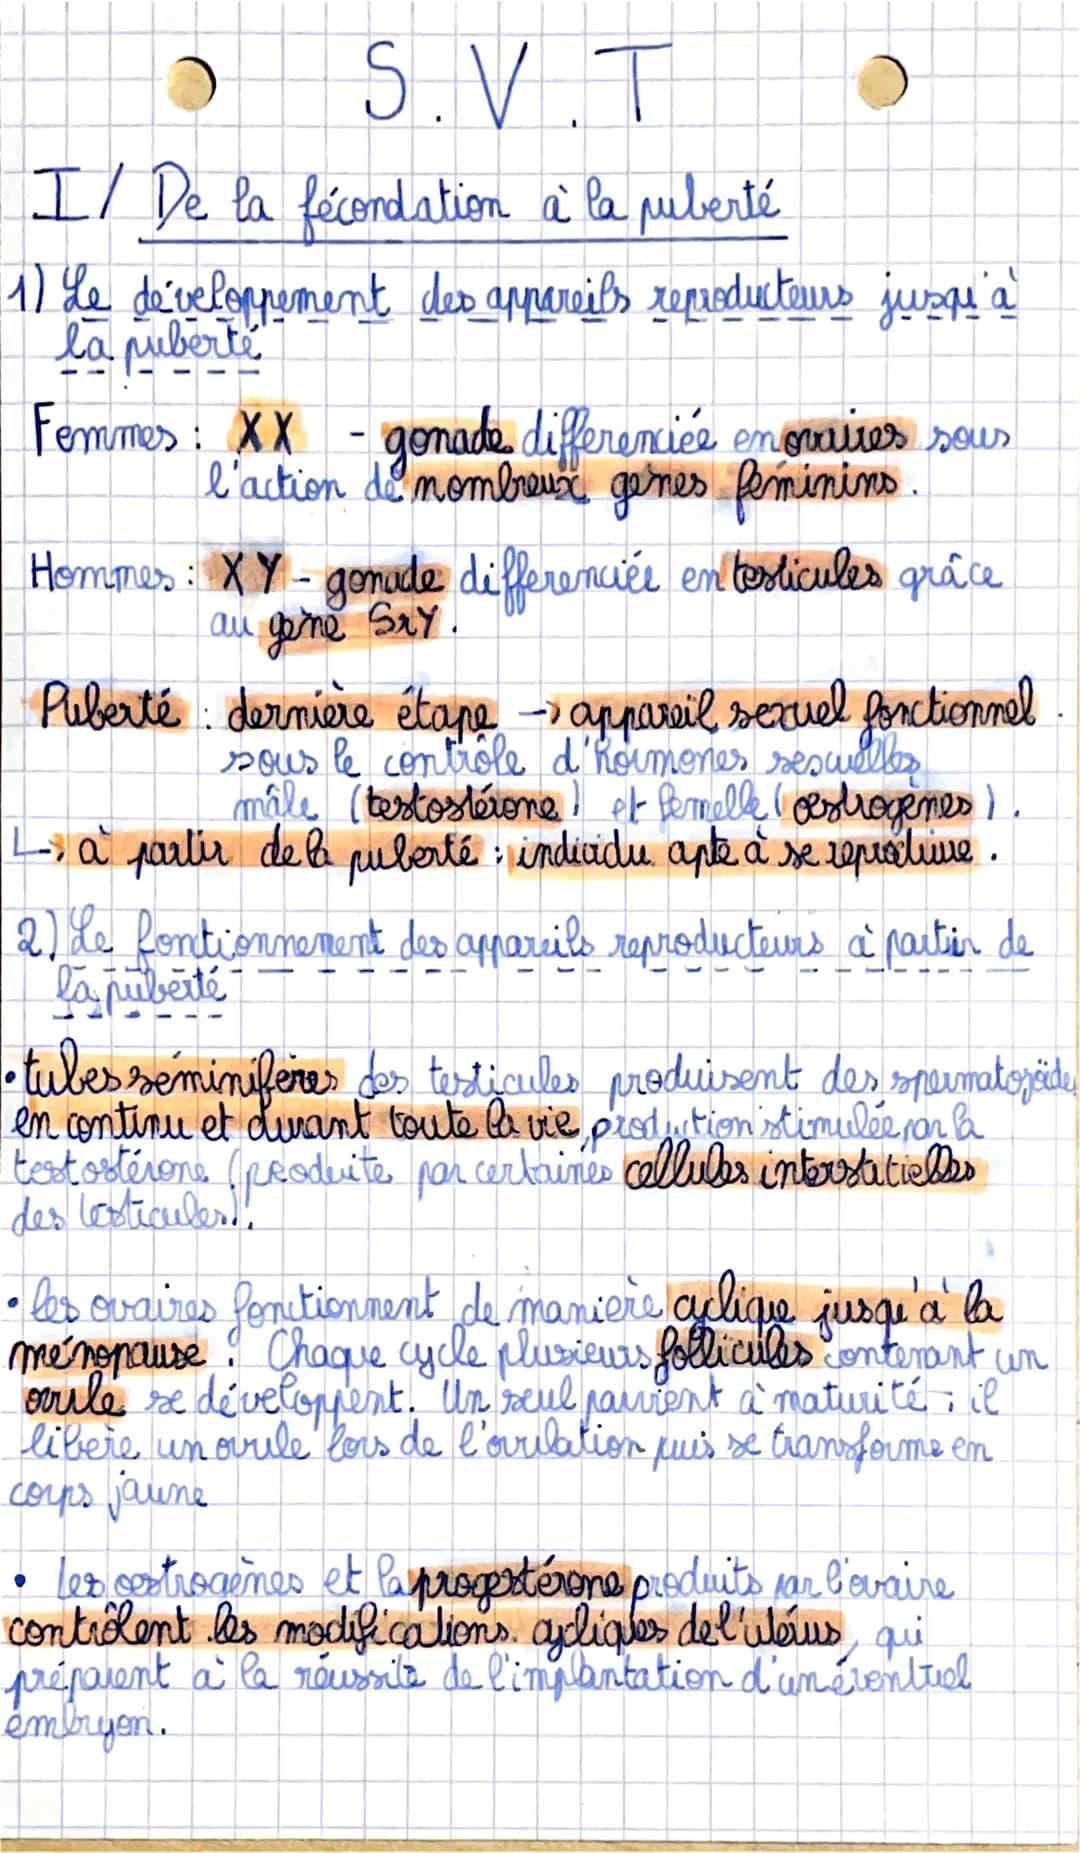 S.V.T
I/ De la fécondation à la puberté
1) Le développement des appareils reproducteurs jusqu'à
la puberté
Femmes : XX - gonade differenciée en ovaires sous
l'action de nombreux gènes féminins.
Hommes : XY - gonade differenciée en testicules grâce
au gène SrY.
Puberté : dernière étape → appareil sexuel fonctionnel.
sous le contrôle d'hormones sexuelles
mâle (testostérone) et femelle (œstrogènes).
↳ à partir de la puberté : individu apte à se reproduire.
2) Le fontionnement des appareils reproducteurs à partir de
la puberté
• tubes séminifères des testicules produisent des spermatozoïdes
en continu et durant toute la vie, production stimulée par la
testostérone (produite par certaines cellules interstitielles
des testicules).
• les ovaires fonctionnent de manière cyclique jusqu'à la
ménopause. Chaque cycle plusieurs follicules contenant un
ovule se développent. Un seul parvient à maturité ; il
libère un ovule lors de l'ovulation puis se transforme en
corps jaune
• Les œstrogènes et la progestérone produits par l'ovaire
contrôlent les modifications cycliques de l'utérus, qui
préparent à la réussite de l'implantation d'un éventuel
embryon.